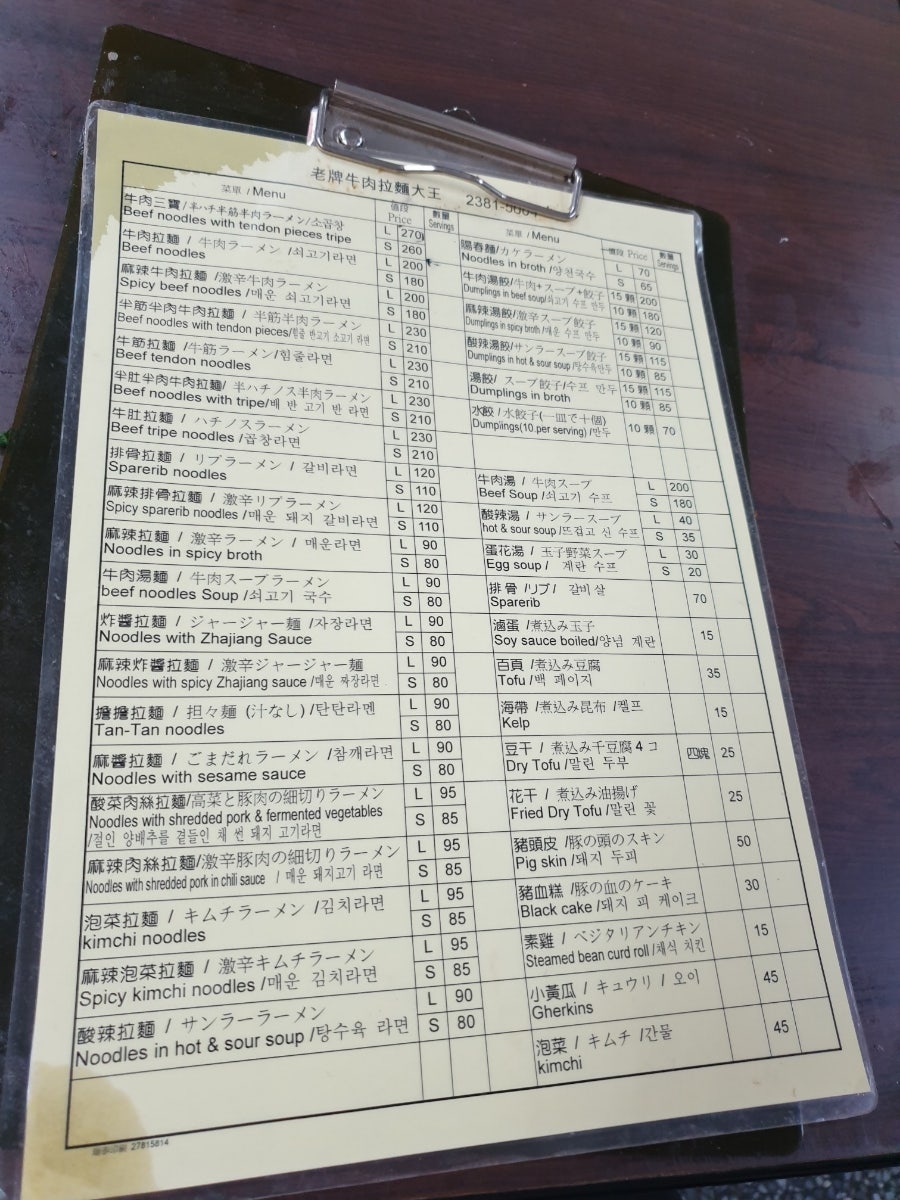 老牌牛肉拉麵大王 2381-5604
菜單 / Menu 值段 Price 數量 Servings
牛肉三寶/ネハチ半筋半肉ラーメン/소곱창 L 270
Beef noodles with tendon pieces tripe S 260
牛肉拉麵 / 牛肉ラーメン /쇠고기라면 L 200
Beef noodles S 180
麻辣牛肉拉麵 /激辛牛肉ラーメン L 200
Spicy beef noodles /매운 쇠고기라면 S 180
半筋半肉牛肉拉麵 / 半筋半肉ラーメン L 230
Beef noodles with tendon pieces/힘줄 반고기 소고기 라면 S 210
牛筋拉麵 / 牛筋ラーメン/힘줄라면 L 230
Beef tendon noodles S 210
半肚半肉牛肉拉麵/ 半ハチノス半肉ラーメン L 230
Beef noodles with tripe/배 반 고기 반 라면 S 210
牛肚拉麵 / ハチノスラーメン L 230
Beef tripe noodles /곱창라면 S 210
排骨拉麵 / リブラーメン / 갈비라면 L 120
Sparerib noodles S 110
麻辣排骨拉麵 / 激辛リブラーメン L 120
Spicy sparerib noodles /매운 돼지 갈비라면 S 110
麻辣拉麵 / 激辛ラーメン / 매운라면 L 90
Noodles in spicy broth S 80
牛肉湯麵 / 牛肉スープラーメン L 90
beef noodles Soup /쇠고기 국수 S 80
炸醬拉麵 / ジャージャー麵 /자장라면 L 90
Noodles with Zhajiang Sauce S 80
麻辣炸醬拉麵 / 激辛ジャージャー麵 L 90
Noodles with spicy Zhajiang sauce /매운 짜장라면 S 80
擔擔拉麵 / 担々麵 (汁なし) /탄탄라멘 L 90
Tan-Tan noodles S 80
麻醬拉麵 / ごまだれラーメン /참깨라면 L 90
Noodles with sesame sauce S 80
酸菜肉絲拉麵/高菜と豚肉の細切りラーメン L 95
Noodles with shredded pork & fermented vegetables S 85
/절인 양배추를 곁들인 채 썬 돼지 고기라면
麻辣肉絲拉麵/激辛豚肉の細切りラーメン L 95
Noodles with shredded pork in chili sauce / 매운 돼지고기 라면 S 85
泡菜拉麵 / キムチラーメン /김치라면 L 95
kimchi noodles S 85
麻辣泡菜拉麵 / 激辛キムチラーメン L 95
Spicy kimchi noodles /매운 김치라면 S 85
酸辣拉麵 / サンラーラーメン L 90
Noodles in hot & sour soup /탕수육 라면 S 80
菜單 / Menu 值段 Price 數量 Servings
陽春麵/カケラーメン L 70
Noodles in broth /양천국수 S 65
牛肉湯餃/牛肉+スープ+餃子 15 顆 200
Dumplings in beef soup/쇠고기 수프 만두 10 顆 180
麻辣湯餃/激辛スープ餃子 15 顆 120
Dumplings in spicy broth /매운 수프 만두 10 顆 90
酸辣湯餃/サンラースープ餃子 15 顆 115
Dumplings in hot & sour soup /탕수육만두 10 顆 85
湯餃/ スープ餃子/수프 만두 15 顆 115
Dumplings in broth 10 顆 85
水餃 / 水餃子(一皿で十個)
Dumplings(10 per serving) /만두 10 顆 70
牛肉湯 / 牛肉スープ L 200
Beef Soup /쇠고기 수프 S 180
酸辣湯 / サンラースープ L 40
hot & sour soup /뜨겁고 신 수프 S 35
蛋花湯 / 玉子野菜スープ L 30
Egg soup / 계란 수프 S 20
排骨 /リブ/ 갈비살 70
Sparerib
滷蛋 /煮込み玉子 15
Soy sauce boiled/양념 계란
百頁 /煮込み豆腐 35
Tofu /백 페이지
海帶 /煮込み昆布 /켈프 15
Kelp
豆干 / 煮込み干豆腐４コ 四塊 25
Dry Tofu /말린 두부
花干 / 煮込み油揚げ 25
Fried Dry Tofu /말린 꽃
豬頭皮 /豚の頭のスキン 50
Pig skin /돼지 두피
豬血糕 /豚の血のケーキ 30
Black cake /돼지 피 케이크
素雞 / ベジタリアンチキン 15
Steamed bean curd roll /채식 치킨
小黃瓜 / キュウリ / 오이 45
Gherkins
泡菜 / キムチ /간물 45
kimchi
27815814